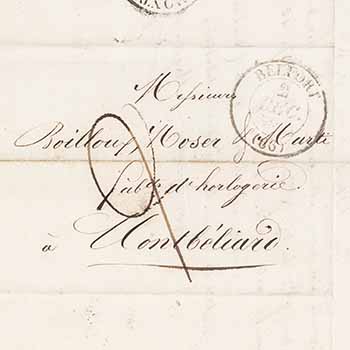 BELFORT
2
DÉC.
(66)
Messieurs
Boilloux, Noser & Marti
fabts d'horlogerie.
à Montbéliard.